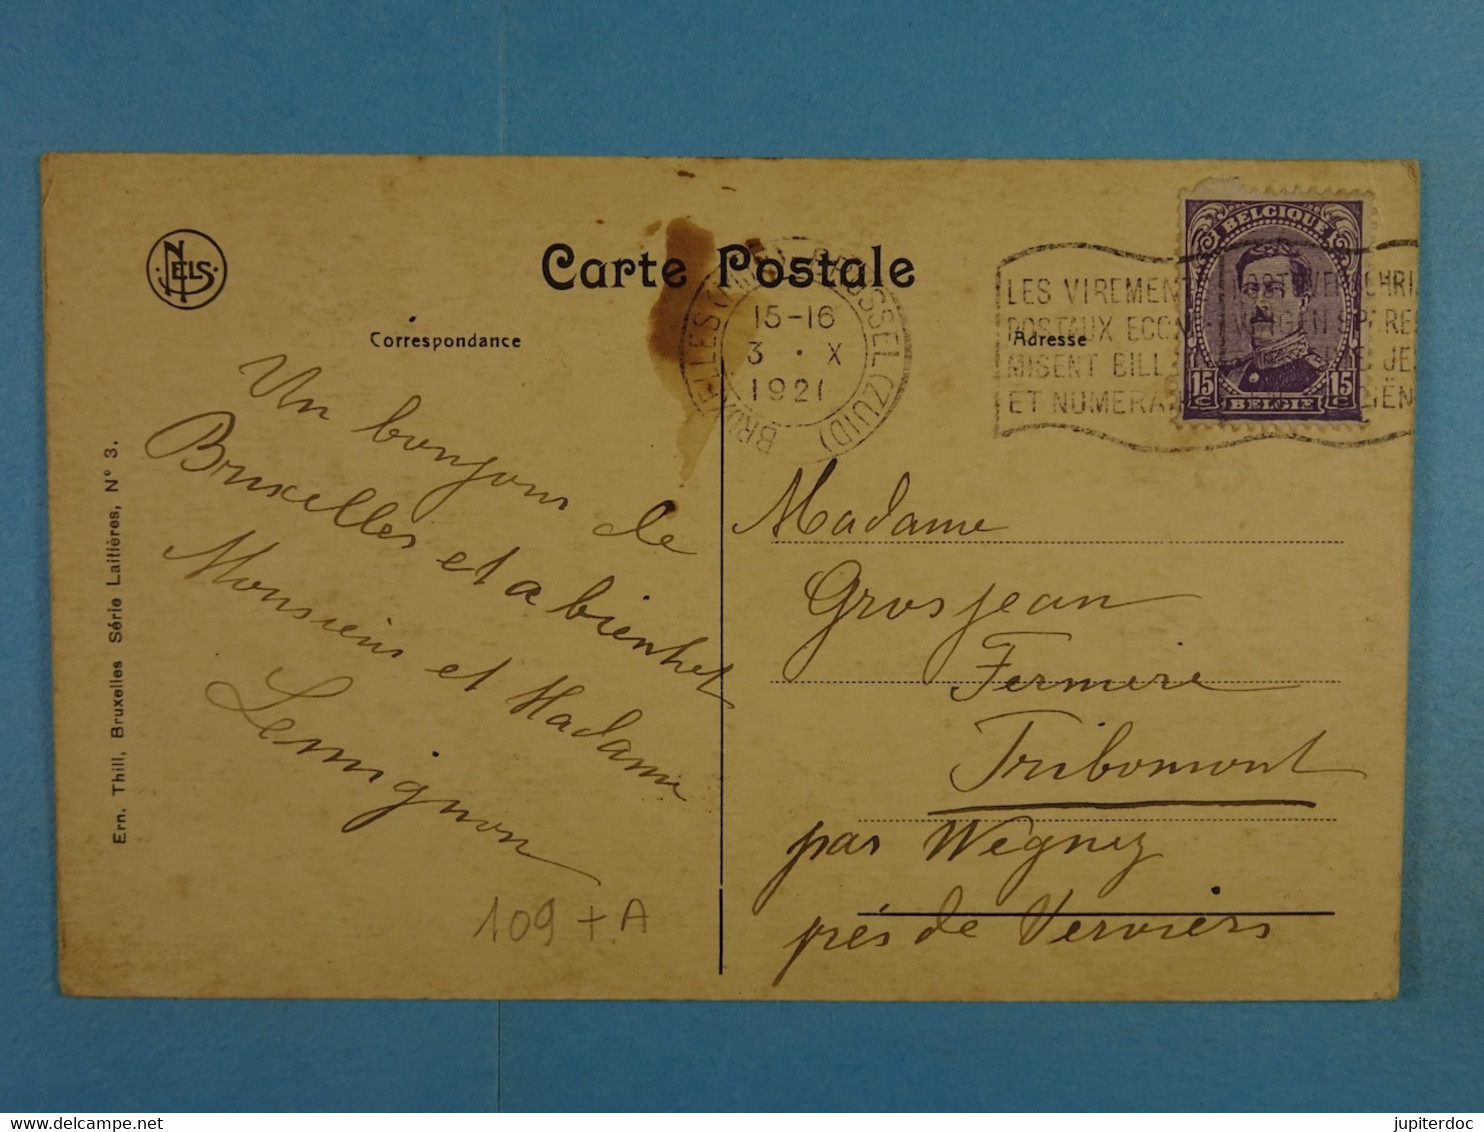 NELS
Carte Postale
Correspondance
Adresse
BRUXELLES (MIDI) BRUSSEL (ZUID)
15-16
3 · X
1921
LES VIREMENT
POSTAUX ECON
MISENT BILL
ET NUMERA
BELGIQUE
15 15
BELGIE
Un bonjour de
Bruxelles et a bientot
Monsieur et Madame
Lemignon
109 + A
Madame
Grosjean
Fermiere
Tribomont
par Wegnez
prés de Verviers
Ern. Thill, Bruxelles Série Laitières, N° 3.
jupiterdoc